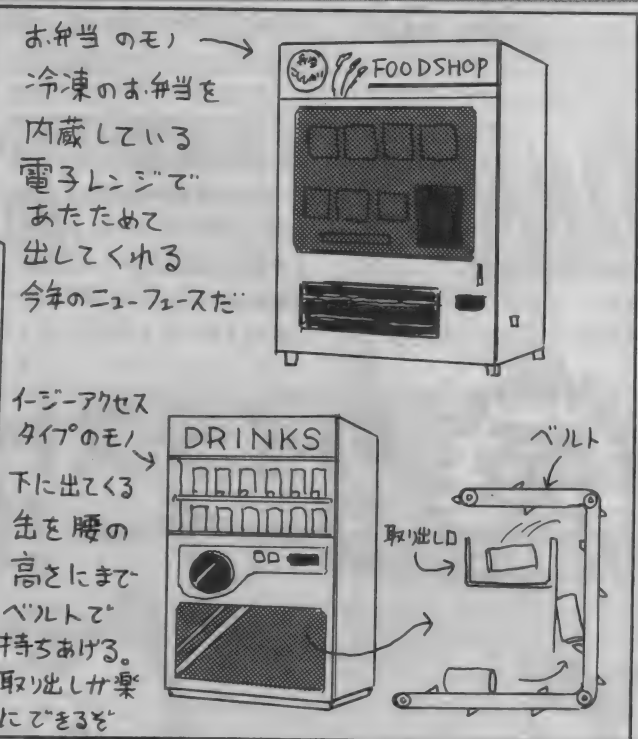 お弁当のモノ
冷凍のお弁当を
内蔵している
電子レンジで
あたためて
出してくれる
今年のニューフェースだ
弁当
FOODSHOP
イージーアクセス
タイプのモノ
下に出てくる
缶を腰の
高さにまで
ベルトで
持ちあげる。
取り出しが楽
にできるぞ
DRINKS
ベルト
取り出し口